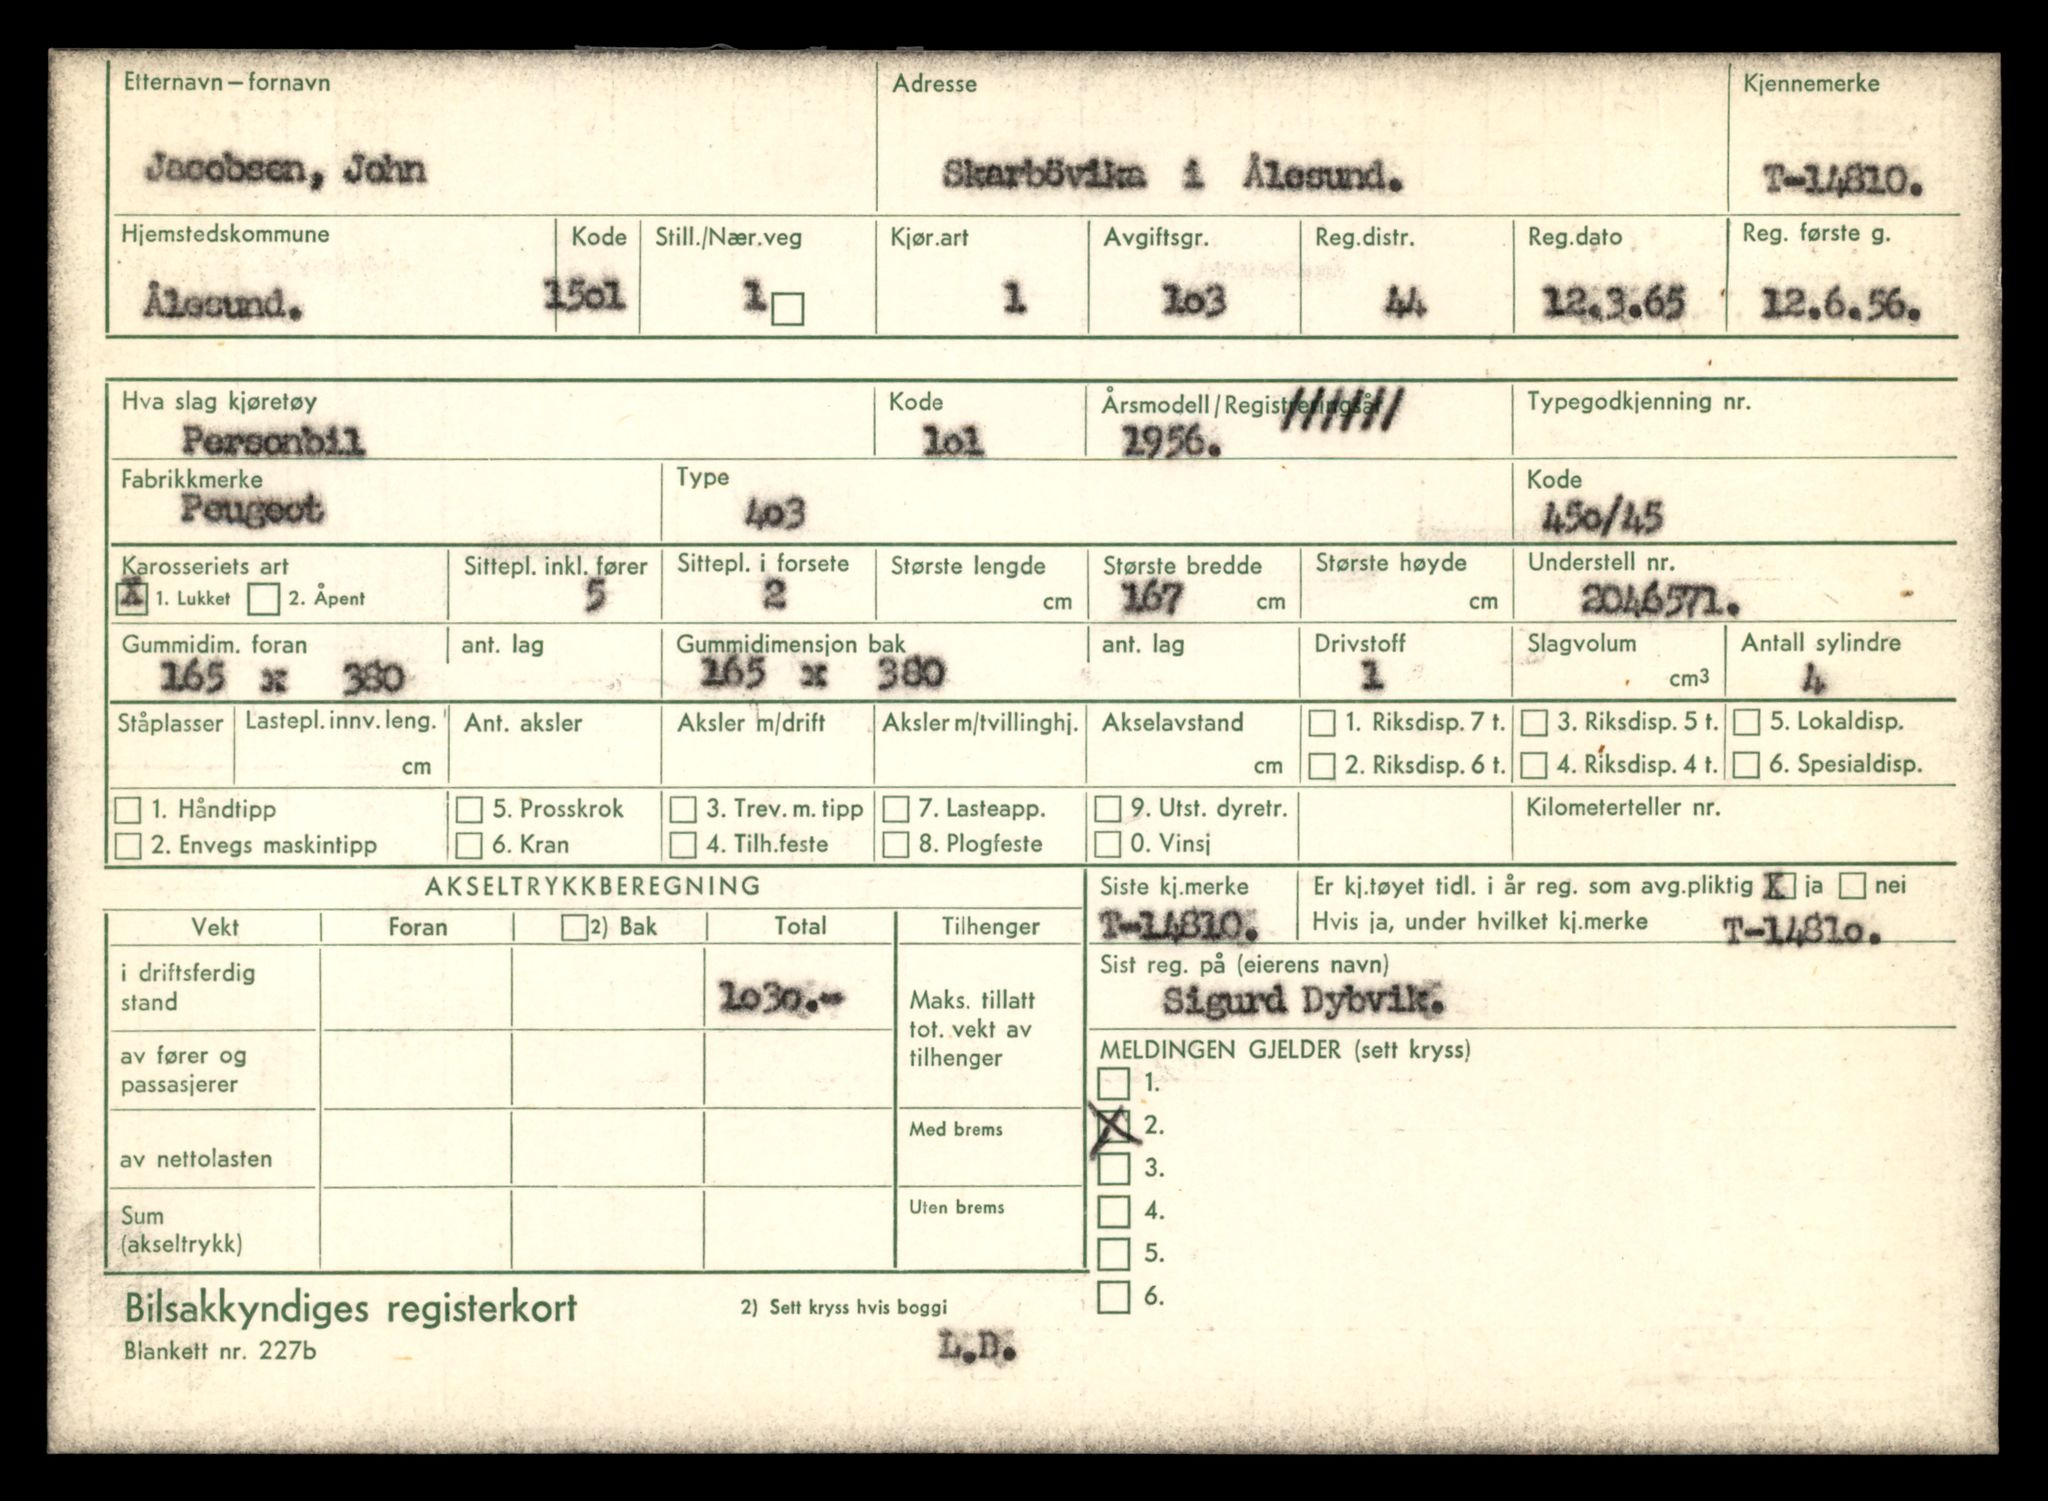 Etternavn – fornavn Adresse Kjennemerke
Jacobsen, John Skarbövika i Ålesund. T-14810.
Hjemstedskommune Kode Still./Nær.veg Kjør.art Avgiftsgr. Reg.distr. Reg.dato Reg. første g.
Ålesund. 15o1 1 1 1o3 44 12.3.65 12.6.56.
Hva slag kjøretøy Kode Årsmodell / Registreringsår ////// Typegodkjenning nr.
Personbil 1o1 1956.
Fabrikkmerke Type Kode
Peugeot 4o3 45o/45
Karosseriets art Sittepl. inkl. fører Sittepl. i forsete Største lengde Største bredde Største høyde Understell nr.
X 1. Lukket 2. Åpent 5 2 cm 167 cm cm 2046571.
Gummidim. foran ant. lag Gummidimensjon bak ant. lag Drivstoff Slagvolum Antall sylindre
165 x 380 165 x 380 1 cm3 4
Ståplasser Lastepl. innv. leng. Ant. aksler Aksler m/drift Aksler m/tvillinghj. Akselavstand 1. Riksdisp. 7 t. 3. Riksdisp. 5 t. 5. Lokaldisp.
cm cm 2. Riksdisp. 6 t. 4. Riksdisp. 4 t. 6. Spesialdisp.
1. Håndtipp 5. Prosskrok 3. Trev. m. tipp 7. Lasteapp. 9. Utst. dyretr. Kilometerteller nr.
2. Envegs maskintipp 6. Kran 4. Tilh.feste 8. Plogfeste 0. Vinsj
AKSELTRYKKBEREGNING Siste kj.merke Er kj.tøyet tidl. i år reg. som avg.pliktig X ja nei
Vekt Foran 2) Bak Total Tilhenger T-14810. Hvis ja, under hvilket kj.merke T-1481o.
i driftsferdig stand 1o3o.- Maks. tillatt tot. vekt av tilhenger
Sist reg. på (eierens navn)
Sigurd Dybvik.
av fører og passasjerer
MELDINGEN GJELDER (sett kryss)
1.
Med brems X 2.
av nettolasten 3.
Sum (akseltrykk) Uten brems 4.
5.
6.
Bilsakkyndiges registerkort 2) Sett kryss hvis boggi
Blankett nr. 227b L.D.